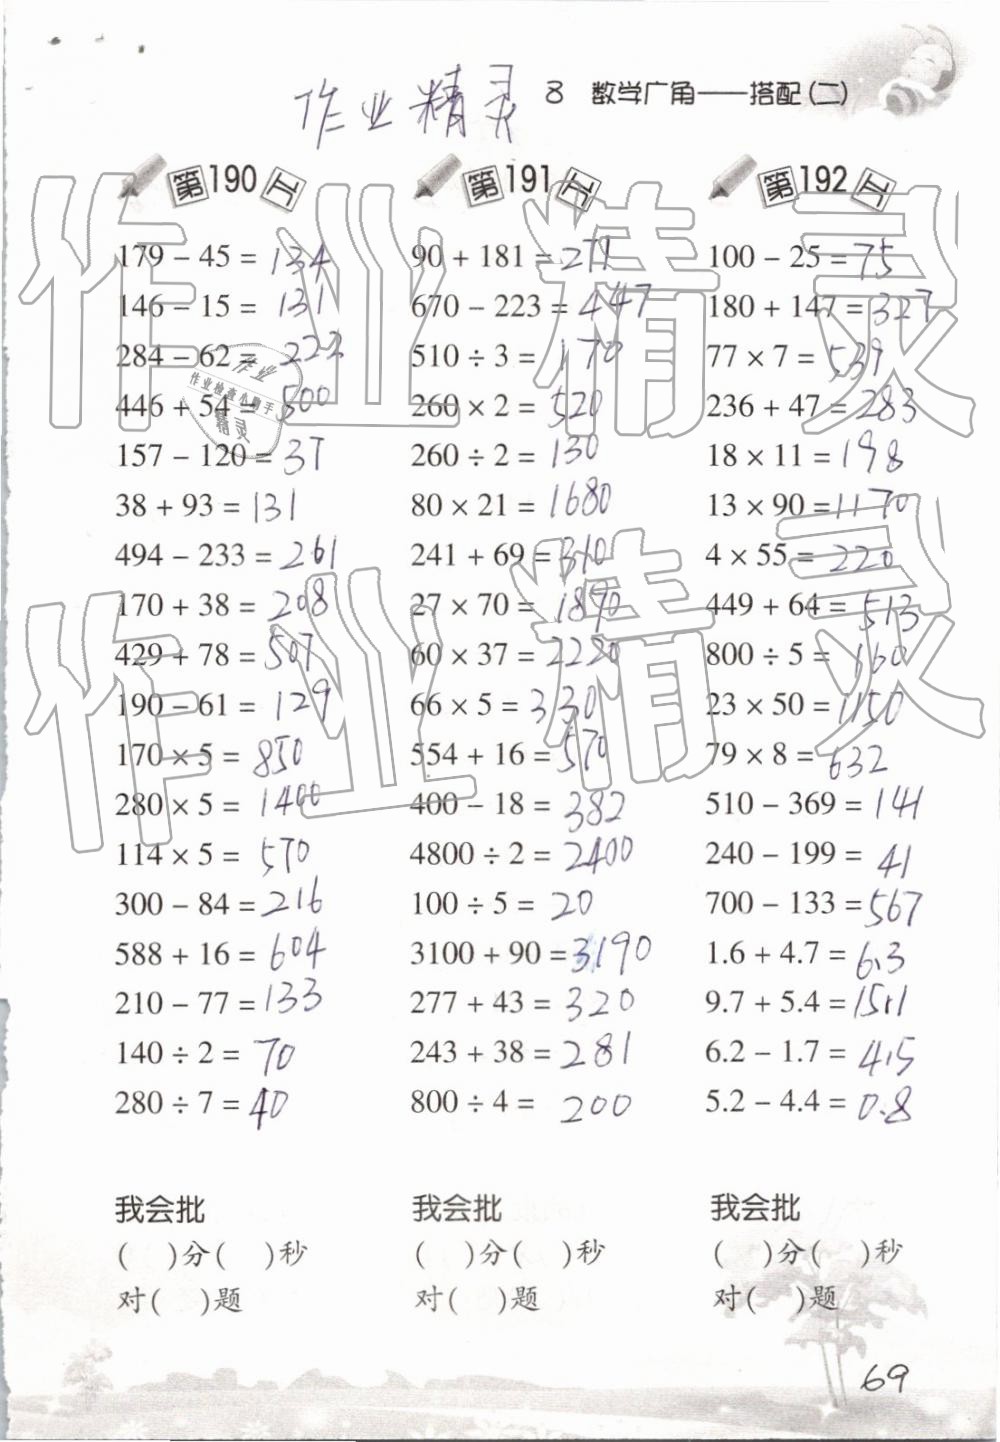 作业精灵 8 数学广角——搭配(二)
第190天
179 − 45 = 134
146 − 15 = 131
284 − 62 = 222
446 + 54 = 500
157 − 120 = 37
38 + 93 = 131
494 − 233 = 261
170 + 38 = 208
429 + 78 = 507
190 − 61 = 129
170 × 5 = 850
280 × 5 = 1400
114 × 5 = 570
300 − 84 = 216
588 + 16 = 604
210 − 77 = 133
140 ÷ 2 = 70
280 ÷ 7 = 40
我会批
(  )分(  )秒
对(  )题
第191天
90 + 181 = 271
670 − 223 = 447
510 ÷ 3 = 170
260 × 2 = 520
260 ÷ 2 = 130
80 × 21 = 1680
241 + 69 = 310
27 × 70 = 1890
60 × 37 = 2220
66 × 5 = 330
554 + 16 = 570
400 − 18 = 382
4800 ÷ 2 = 2400
100 ÷ 5 = 20
3100 + 90 = 3190
277 + 43 = 320
243 + 38 = 281
800 ÷ 4 = 200
我会批
(  )分(  )秒
对(  )题
第192天
100 − 25 = 75
180 + 147 = 327
77 × 7 = 539
236 + 47 = 283
18 × 11 = 198
13 × 90 = 1170
4 × 55 = 220
449 + 64 = 513
800 ÷ 5 = 160
23 × 50 = 1150
79 × 8 = 632
510 − 369 = 141
240 − 199 = 41
700 − 133 = 567
1.6 + 4.7 = 6.3
9.7 + 5.4 = 15.1
6.2 − 1.7 = 4.5
5.2 − 4.4 = 0.8
我会批
(  )分(  )秒
对(  )题
69
作业精灵
作业精灵
作业
作业检查小助手
精灵